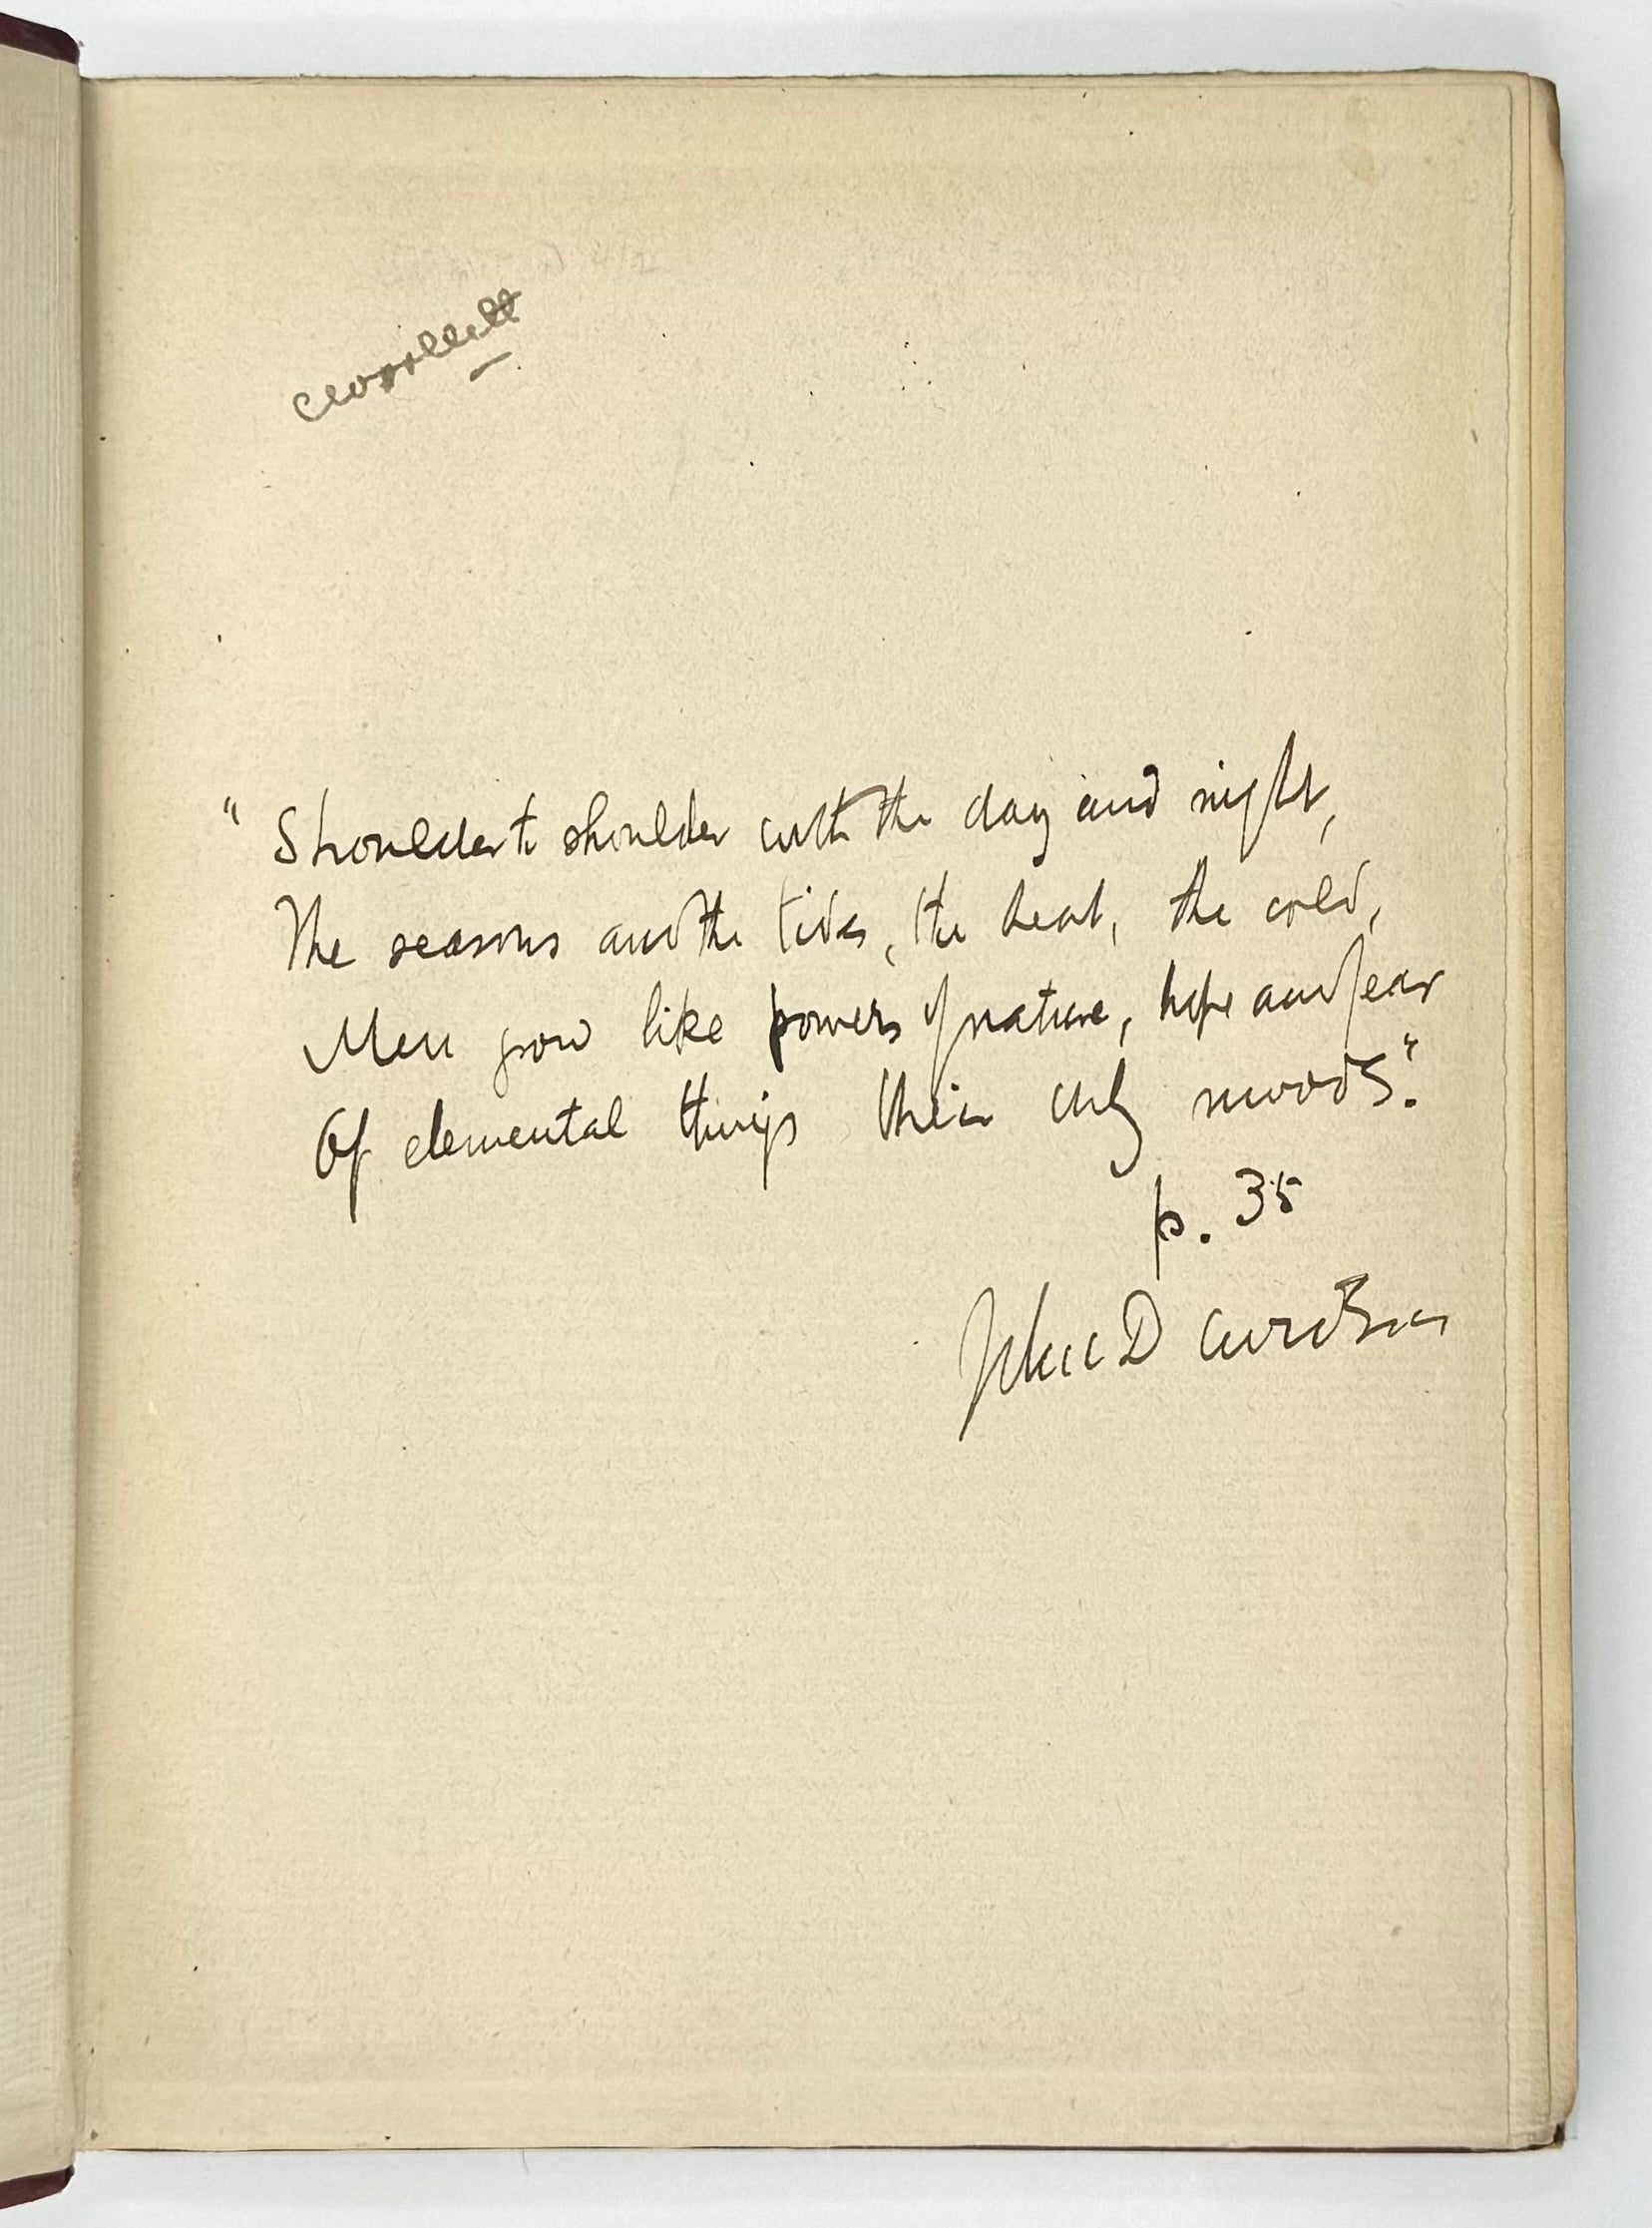 " Shoulder to shoulder with the day and night,
The seasons and the tides, the heat, the cold,
Men grow like powers of nature, hope and fear
Of elemental things their only moods."
p. 35
John Davidson